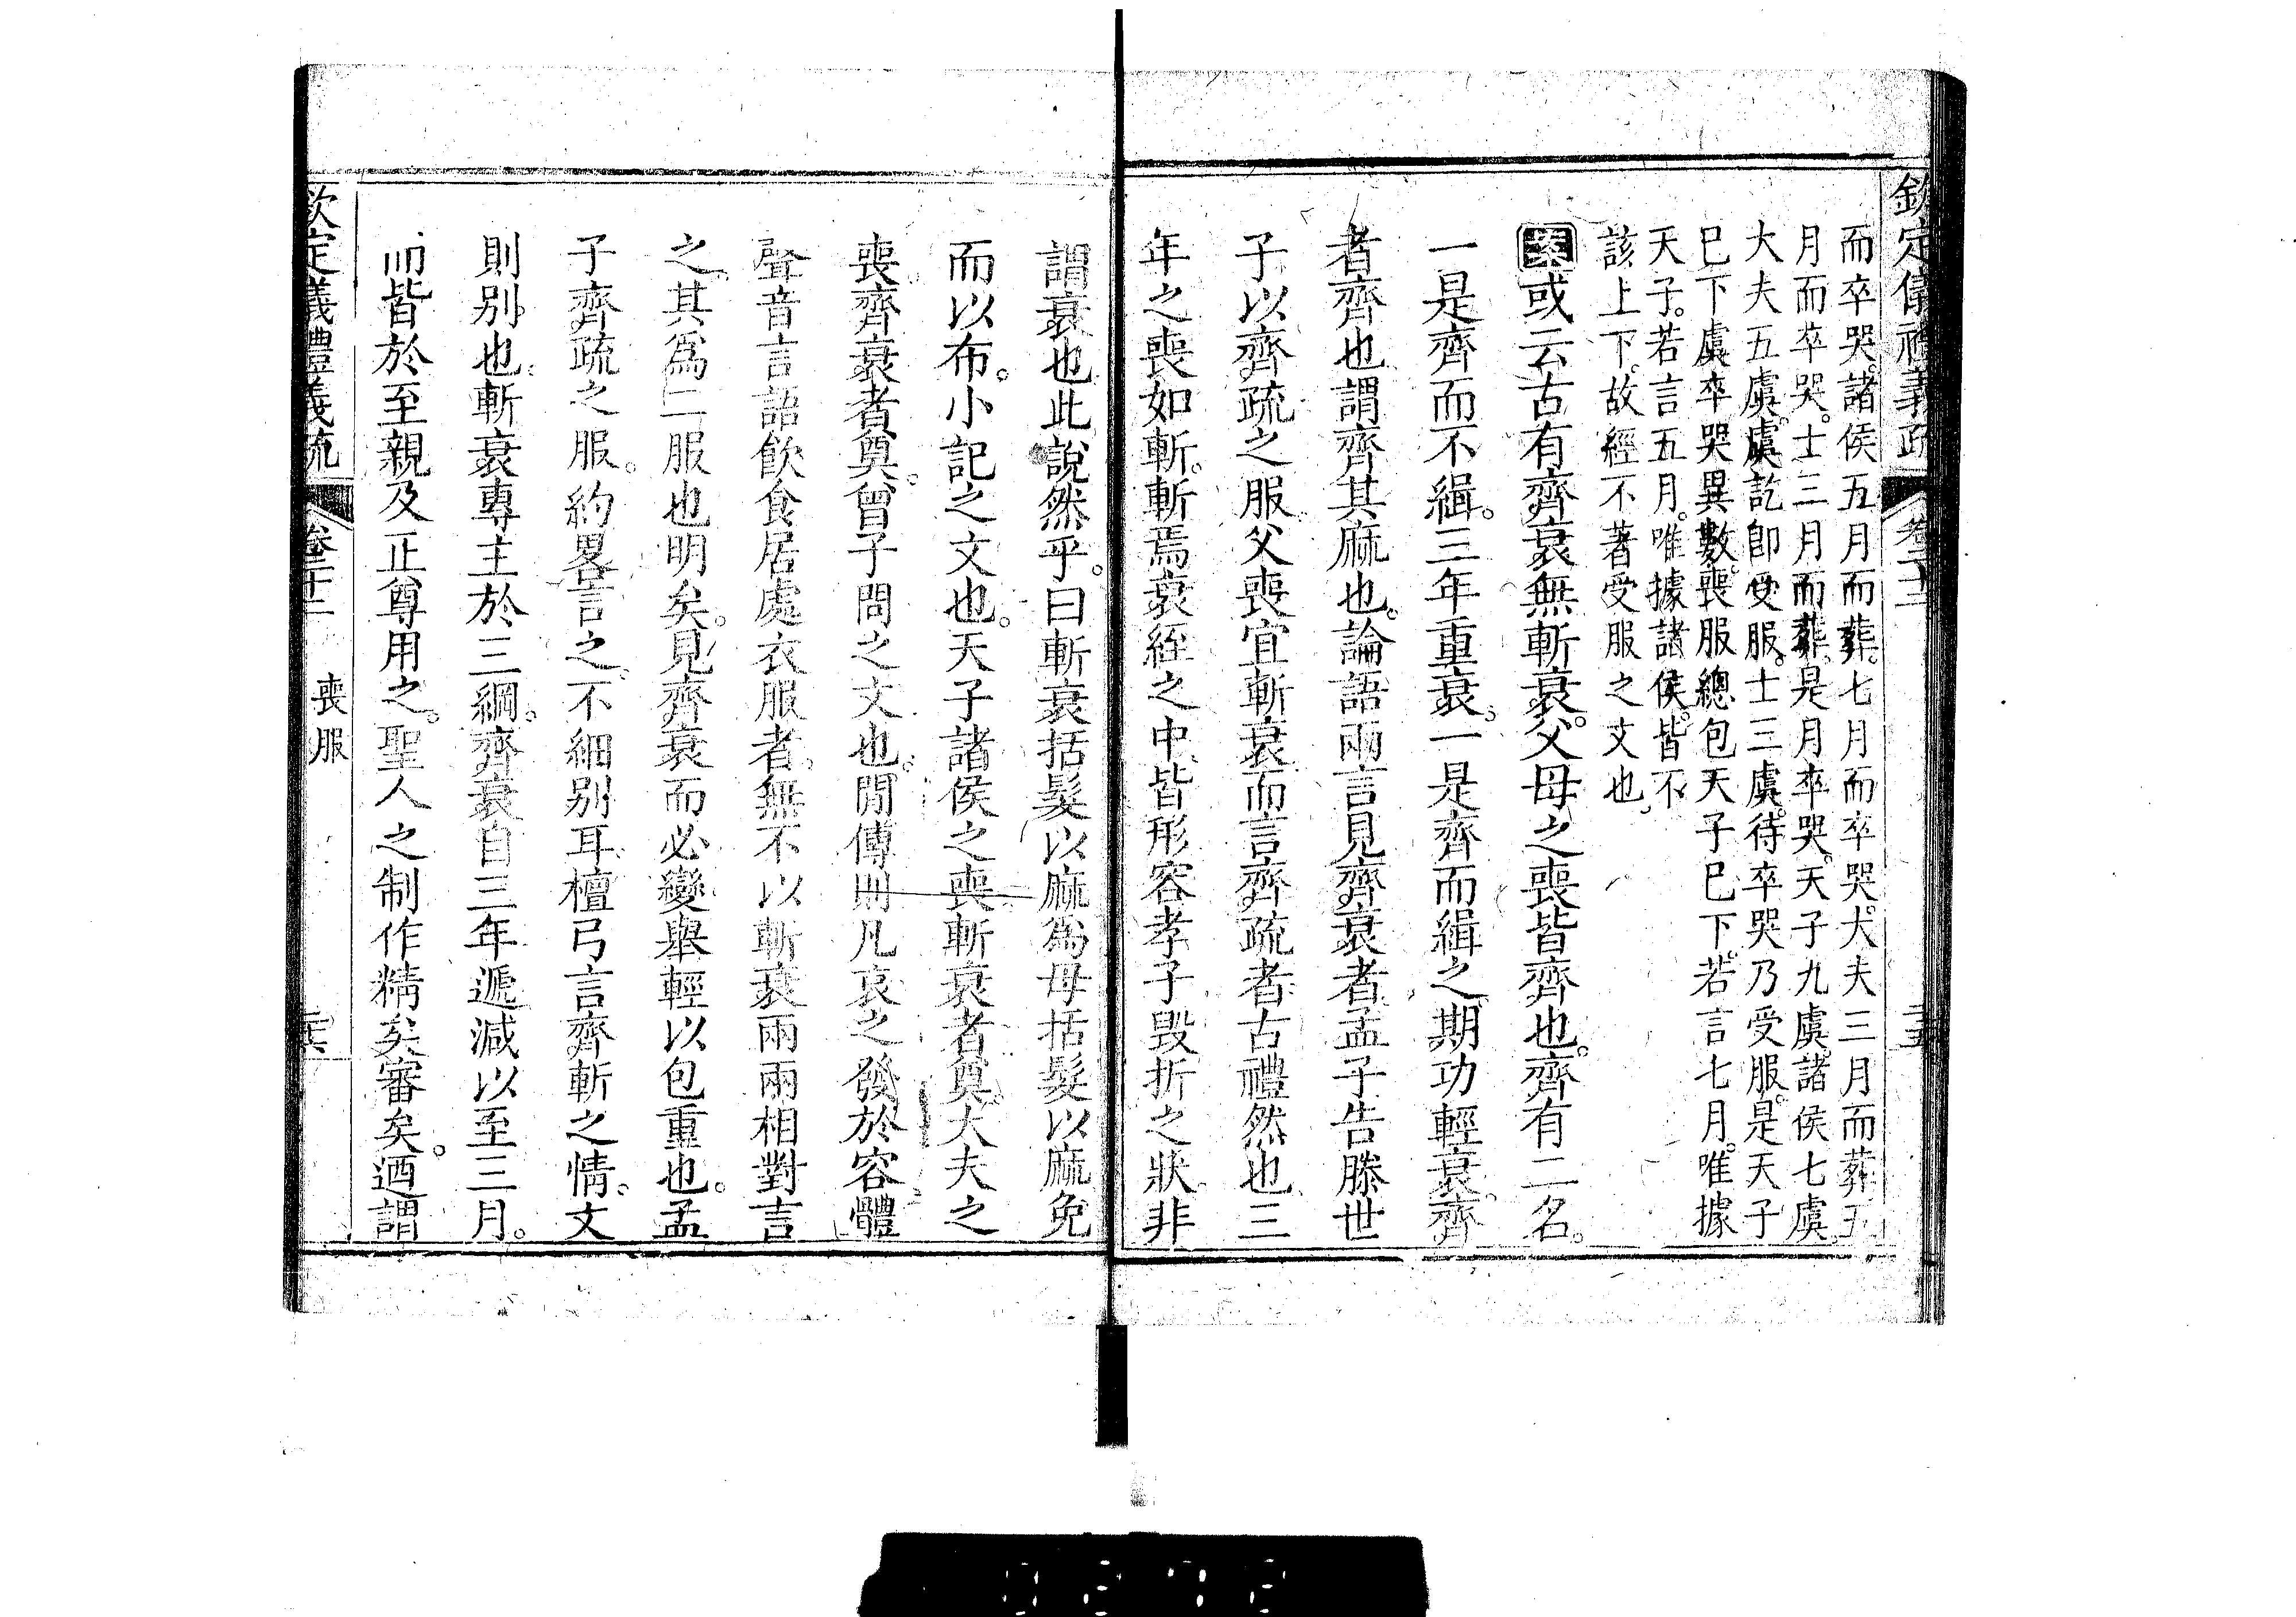 欽定儀禮義疏 卷二十二 二十五
而卒哭。諸侯五月而葬。七月而卒哭。大夫三月而葬。五
月而卒哭。士三月而葬。是月卒哭。天子九虞。諸侯七虞。
大夫五虞。虞訖卽受服。士三虞。待卒哭乃受服。是天子
已下虞卒哭異數。喪服總包天子已下。若言七月。唯據
天子。若言五月。唯據諸侯。皆不
該上下。故經不著受服之文也。
案或云古有齊衰無斬衰。父母之喪皆齊也。齊有二名。
一是齊而不緝。三年重衰。一是齊而緝之。期功輕衰。齊
者齊也。謂齊其麻也。論語兩言見齊衰者。孟子告滕世
子以齊疏之服。父喪宜斬衰而言齊疏者。古禮然也。三
年之喪如斬。斬焉衰絰之中。皆形容孝子毀折之狀。非
謂衰也。此說然乎。曰斬衰括髮以麻。為母括髮以麻。免
而以布。小記之文也。天子諸侯之喪。斬衰者奠。大夫之
喪。齊衰者奠。曾子問之文也。閒傳則凡哀之發於容體
聲音言語飲食居處衣服者。無不以斬衰兩兩相對言
之。其為二服也明矣。見齊衰而必變。舉輕以包重也。孟
子齊疏之服。約畧言之。不細別耳。檀弓言齊斬之情。文
則別也。斬衰專主於三綱。齊衰自三年遞減以至三月。
而皆於至親及正尊用之。聖人之制作精矣審矣。迺謂
欽定儀禮義疏 卷二十二 喪服 二十六